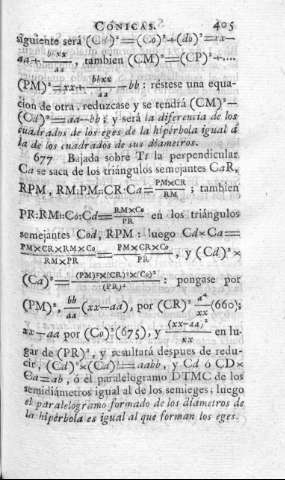 CÓNICAS. 405
siguiente será (Cd)²=(Co)²+(do)²=xx—
aa+bbxx/aa, tambien (CM)²=(CP)²+....
(PM)²=xx+bbxx/aa—bb: réstese una equa-
cion de otra, reduzcase y se tendrá (CM)²—
(Cd)²=aa—bb; y será la diferencia de los
cuadrados de los eges de la hipérbola igual á
la de los cuadrados de sus diámetros.
677 Bajada sobre Tt la perpendicular
Ca se saca de los triángulos semejantes CaR,
RPM, RM:PM::CR:Ca=PM×CR/RM; tambien
PR:RM::Co:Cd=RM×Co/PR en los triángulos
semejantes Cod, RPM: luego Cd×Ca=
PM×CR×RM×Co/RM×PR=PM×CR×Co/PR, y (Cd)²×
(Ca)²=(PM)²×(CR)²×(Co)²/(PR)²: pongase por
(PM)², bb/aa(xx—aa), por (CR)² a⁴/xx(660);
xx—aa por (Co)²(675), y (xx—aa)²/xx en lu-
gar de (PR)², y resultará despues de redu-
cir, (Cd)²×(Ca)²=aabb, y Cd ó CD×
Ca=ab, ó el paralelogramo DTMC de los
semidiámetros igual al de los semieges; luego
el paralelogramo formado de los diámetros de
la hipérbola es igual al que forman los eges.